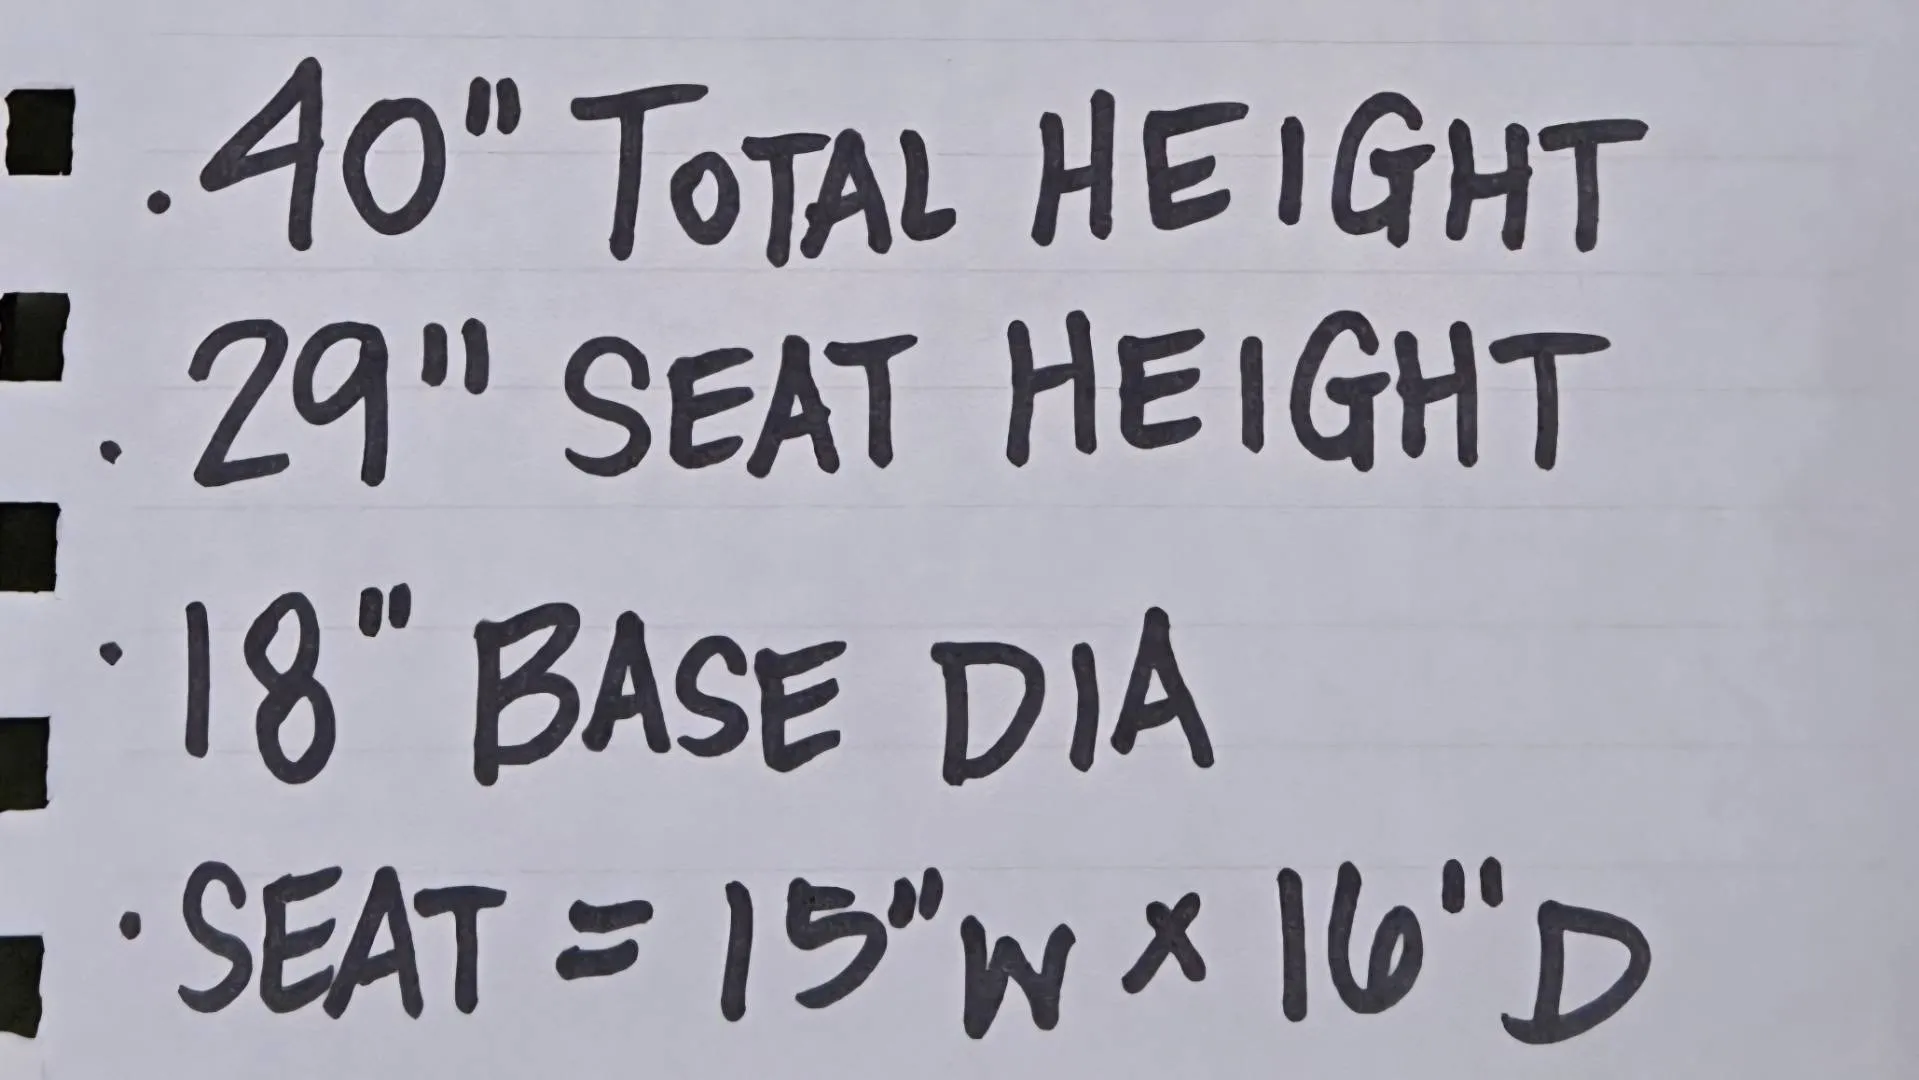 · 40" TOTAL HEIGHT
· 29" SEAT HEIGHT
· 18" BASE DIA
· SEAT = 15" W x 16" D